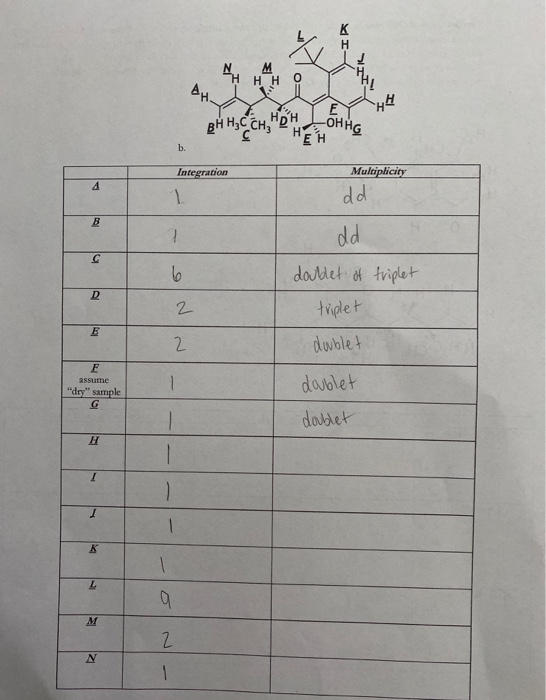 L K
H
N M J
H H H O H
A H I H
H H
F
B H H₃C CH₃ H D H OH H G
C H E H
b.
Integration Multiplicity
A 1 dd
B 1 dd
C 6 doublet of triplet
D 2 triplet
E 2 doublet
F
assume
"dry" sample 1 doublet
G 1 doublet
H 1
I 1
J 1
K 1
L 9
M 2
N 1